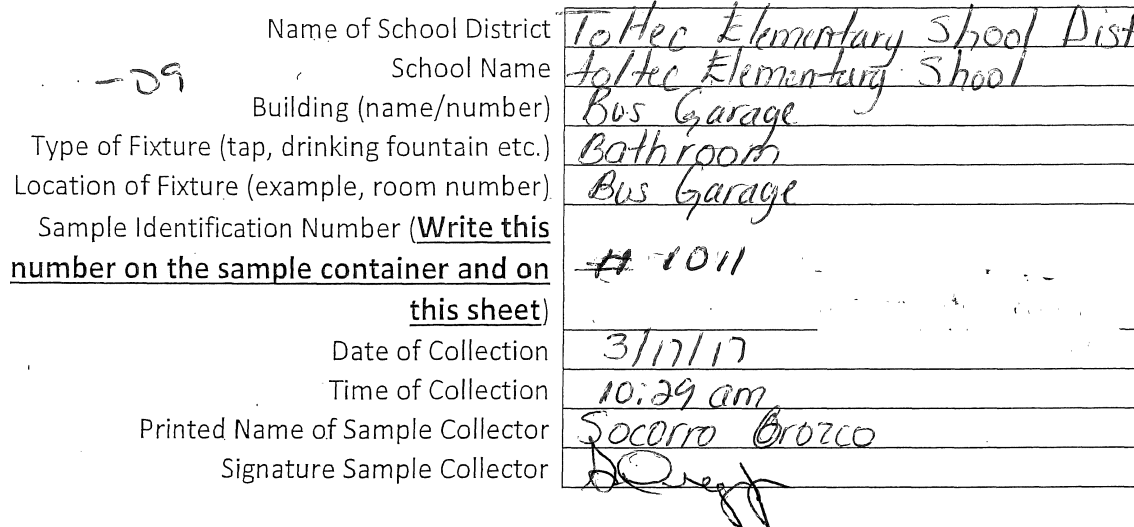 Name of School District Toltec Elementary Shool Dist
-09
School Name toltec Elementary Shool
Building (name/number) Bus Garage
Type of Fixture (tap, drinking fountain etc.) Bathroom
Location of Fixture (example, room number) Bus Garage
Sample Identification Number (Write this
number on the sample container and on # 1011
this sheet)
Date of Collection 3/17/17
Time of Collection 10:29 am
Printed Name of Sample Collector Socorro Orozco
Signature Sample Collector